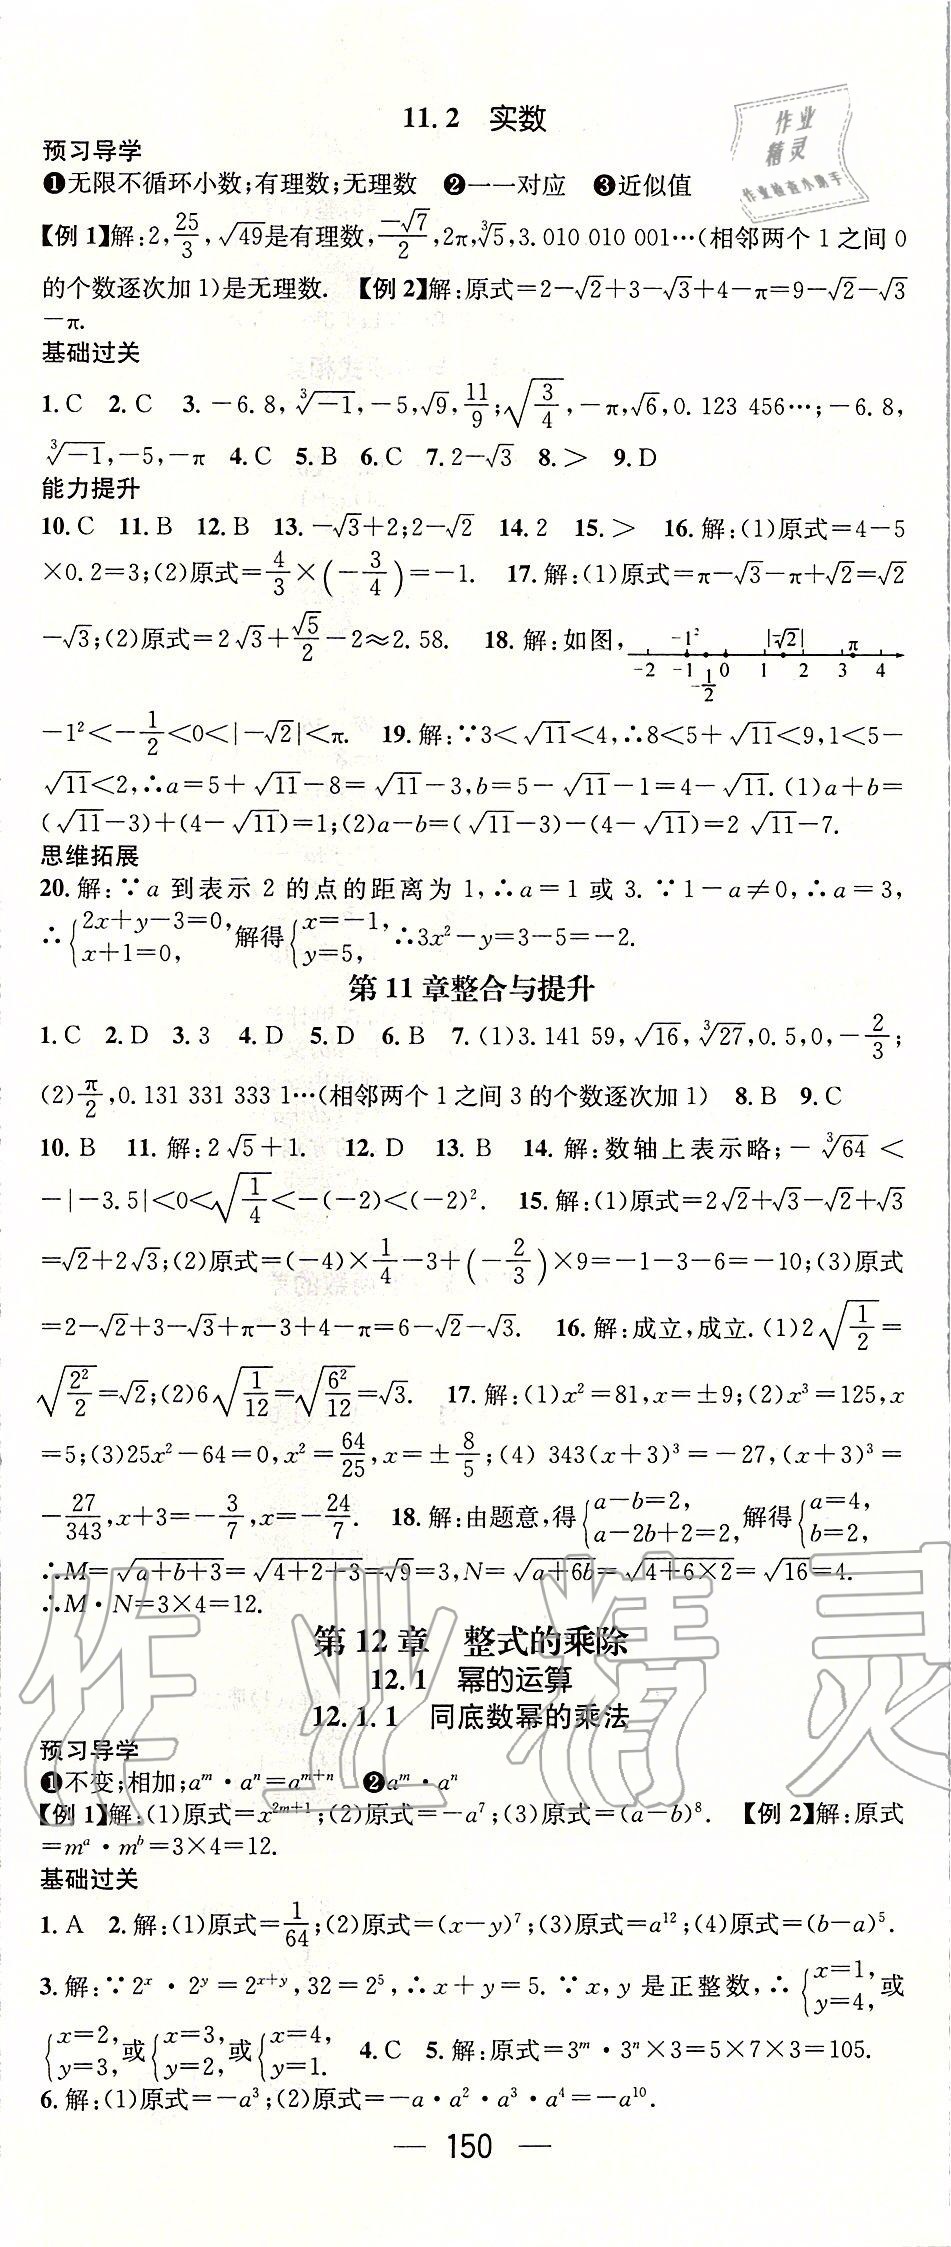 11.2 实数
作业
精灵
作业检查小助手
预习导学
❶无限不循环小数;有理数;无理数 ❷一一对应 ❸近似值
【例1】解:2,25/3,√49是有理数,-√7/2,2π,∛5,3.010 010 001…(相邻两个1之间0
的个数逐次加1)是无理数. 【例2】解:原式=2-√2+3-√3+4-π=9-√2-√3
-π.
基础过关
1.C 2.C 3.-6.8,∛-1,-5,√9,11/9;√(3/4),-π,√6,0.123 456…;-6.8,
∛-1,-5,-π 4.C 5.B 6.C 7.2-√3 8.> 9.D
能力提升
10.C 11.B 12.B 13.-√3+2;2-√2 14.2 15.> 16.解:(1)原式=4-5
×0.2=3;(2)原式=4/3×(-3/4)=-1. 17.解:(1)原式=π-√3-π+√2=√2
-√3;(2)原式=2√3+√5/2-2≈2.58. 18.解:如图,
-1² |-√2| π
-2 -1 0 1 2 3 4
-1/2
-1²<-1/2<0<|-√2|<π. 19.解:∵3<√11<4,∴8<5+√11<9,1<5-
√11<2,∴a=5+√11-8=√11-3,b=5-√11-1=4-√11.(1)a+b=
(√11-3)+(4-√11)=1;(2)a-b=(√11-3)-(4-√11)=2√11-7.
思维拓展
20.解:∵a到表示2的点的距离为1,∴a=1或3.∵1-a≠0,∴a=3,
∴{2x+y-3=0, x+1=0, 解得{x=-1, y=5, ∴3x²-y=3-5=-2.
第11章整合与提升
1.C 2.D 3.3 4.D 5.D 6.B 7.(1)3.141 59,√16,∛27,0.5,0,-2/3;
(2)π/2,0.131 331 333 1…(相邻两个1之间3的个数逐次加1) 8.B 9.C
10.B 11.解:2√5+1. 12.D 13.B 14.解:数轴上表示略;-∛64<
-|-3.5|<0<√(1/4)<-(-2)<(-2)². 15.解:(1)原式=2√2+√3-√2+√3
=√2+2√3;(2)原式=(-4)×1/4-3+(-2/3)×9=-1-3-6=-10;(3)原式
=2-√2+3-√3+π-3+4-π=6-√2-√3. 16.解:成立,成立.(1)2√(1/2)=
√(2²/2)=√2;(2)6√(1/12)=√(6²/12)=√3. 17.解:(1)x²=81,x=±9;(2)x³=125,x
=5;(3)25x²-64=0,x²=64/25,x=±8/5;(4) 343(x+3)³=-27,(x+3)³=
-27/343,x+3=-3/7,x=-24/7. 18.解:由题意,得{a-b=2, a-2b+2=2, 解得{a=4, b=2,
∴M=√(a+b+3)=√(4+2+3)=√9=3,N=√(a+6b)=√(4+6×2)=√16=4.
∴M·N=3×4=12.
作业精灵
第12章 整式的乘除
12.1 幂的运算
12.1.1 同底数幂的乘法
预习导学
❶不变;相加;aᵐ·aⁿ=aᵐ⁺ⁿ ❷aᵐ·aⁿ
【例1】解:(1)原式=x²ᵐ⁺¹;(2)原式=-a⁷;(3)原式=(a-b)⁸. 【例2】解:原式
=mᵃ·mᵇ=3×4=12.
基础过关
1.A 2.解:(1)原式=1/64;(2)原式=(x-y)⁷;(3)原式=a¹²;(4)原式=(b-a)⁵.
3.解:∵2ˣ·2ʸ=2ˣ⁺ʸ,32=2⁵,∴x+y=5.∵x,y是正整数,∴{x=1, y=4, 或
{x=2, y=3, 或{x=3, y=2, 或{x=4, y=1. 4.C 5.解:原式=3ᵐ·3ⁿ×3=5×7×3=105.
6.解:(1)原式=-a³;(2)原式=-a·a²·a³·a⁴=-a¹⁰.
— 150 —